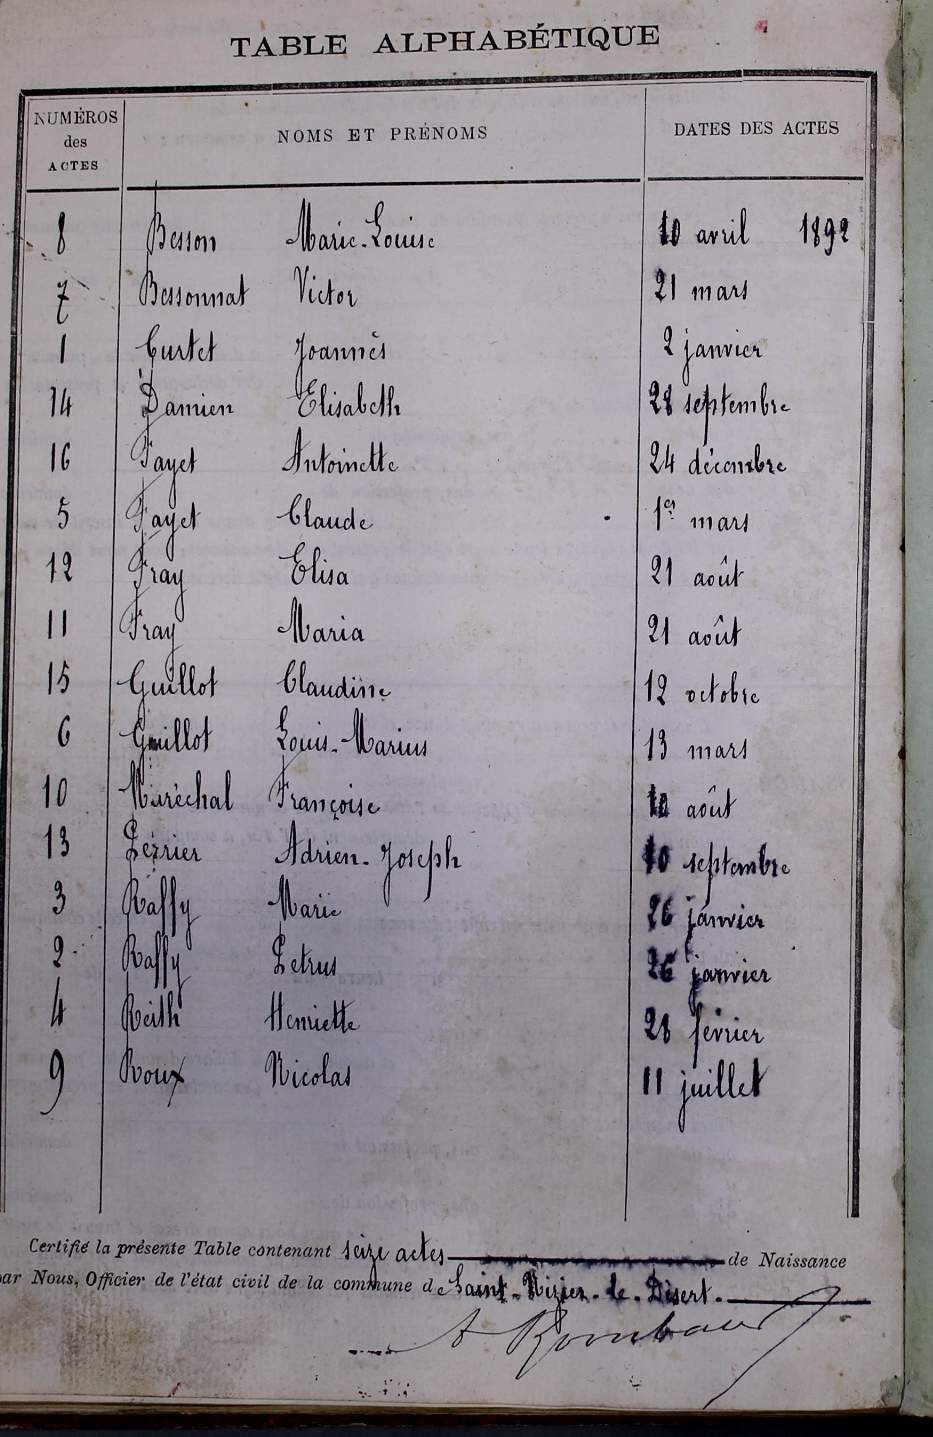 TABLE ALPHABÉTIQUE
NUMÉROS des ACTES NOMS ET PRÉNOMS DATES DES ACTES
8 Besson Marie-Louise 10 avril 1892
7 Bessonnat Victor 21 mars
1 Curtet Joannès 2 janvier
14 Damien Elisabeth 28 septembre
16 Fayet Antoinette 24 décembre
5 Fayet Claude 1er mars
12 Fray Elisa 21 août
11 Fray Maria 21 août
15 Guillot Claudine 12 octobre
6 Guillot Louis-Marius 13 mars
10 Maréchal Françoise 10 août
13 Perrier Adrien-Joseph 10 septembre
3 Raffy Marie 26 janvier
2 Raffy Petrus 26 janvier
4 Reith Henriette 28 février
9 Roux Nicolas 11 juillet
Certifié la présente Table contenant seize actes de Naissance
par Nous, Officier de l'état civil de la commune de Saint-Nizier-le-Désert.